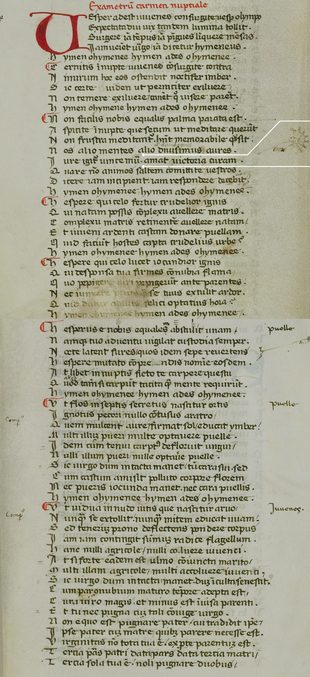 Exametrū carmen nuptiale
Vesper adest iuvenes consurgite vesper olympo
Expectata diu vix tandem lumina tollit.
Surgere iā tēpus iā pigues liquere mensas.
Iam veniet virgo iā dicetur hymeneus.
Hymen ohymenee hymen ades ohymenee.
Cernitis innupte iuvenes consurgite contra
Nimirum hoc eos ostendit noctifer imber.
Sic certe viden ut perniciter exiluere
Non temere exiluere canēt quod visere parēt.
Hymen ohymenee hymen ades ohymenee.
Non facilis nobis equalis palma parata est.
Aspicite innupte que secum ut meditare querunt
Non frustra meditantur habent memorabile quod sit
Nos alio mentes alio divisimus aures.
Iure igitur vincemur amat victoria curam.
Quare nunc animos saltem committite vestros
Dicere iam incipient iam respondere decebit.
Hymen ohymenee hymen ades ohymenee.
Hespere qui celo fertur crudelior ignis
Qui natam possis cōplexu avellere matris.
Complexu matris retinentē avellere natam.
Et iuveni ardenti castam donare puellam.
Quid faciunt hostes capta crudelius urbe
Hymen ohymenee hymen ades ohymenee.
Hespere qui celo lucet iocundior ignis
Qui desponsa tua firmes conubia flama
Quo pepigere
Nec iunxere se tuus extulit ardor.
Quid datur felici optatius hora
Hymen ohymenee hymen ades ohymenee.
Hesperus e nobis equales abstulit unam. puelle
Namque tuo adventu vigilat custodia semper.
Nocte latent fures quos idem sepe revertens
Hespere mutato conprendis nomine eosdem
At libet innuptis ficto te carpere questu
Quod tamen si carpunt tacita quem mente requirunt.
Hymen ohymenee hymen ades ohymenee.
Ut flos in septis secretus nascitur ortis puelle
Ignotus pecori nullo cōtusus aratro
Quem mulcent aure firmat sol educat ymber.
Multi illum pueri multe optavere puelle.
Idem cum tenui carptus defloruit ungui
Nulli illum pueri nulle optavere puelle.
Sic virgo dum intacta manet tum cara suis sed
Cum castum amisit polluto corpore florem
Nec pueris iocunda manet nec cara puellis.
Hymen ohymenee hymen ades ohymenee.
Ut vidua in nudo vitis que nascitur arvo Iuvenes.
Nunquam se extollit nunquam mitem educat uvam
Sed tenerum prono deflectens pondere corpus
Iam iam contingit summum radice flagellum.
Hanc nulli agricole nulli coluere iuvenci.
At si forte eadem est ulmo coniuncta marito
Multi illam agricole multi accoluere iuvenci.
Sic virgo dum intacta manet dum inculta senescit.
Cum par conubium maturo tempore adepta est
Cara viro magis et minus est invisa parenti.
Et tu nec pugna cum tali coniuge virgo.
Non equo est pugnare pater cui tradidit ipse
Ipse pater cum matre quibus parere necesse est.
Virginitas non tota tua est ex parte parentum est.
Tercia pars patri data pars data tercia matri
Tercia sola tua est noli pugnare duobus